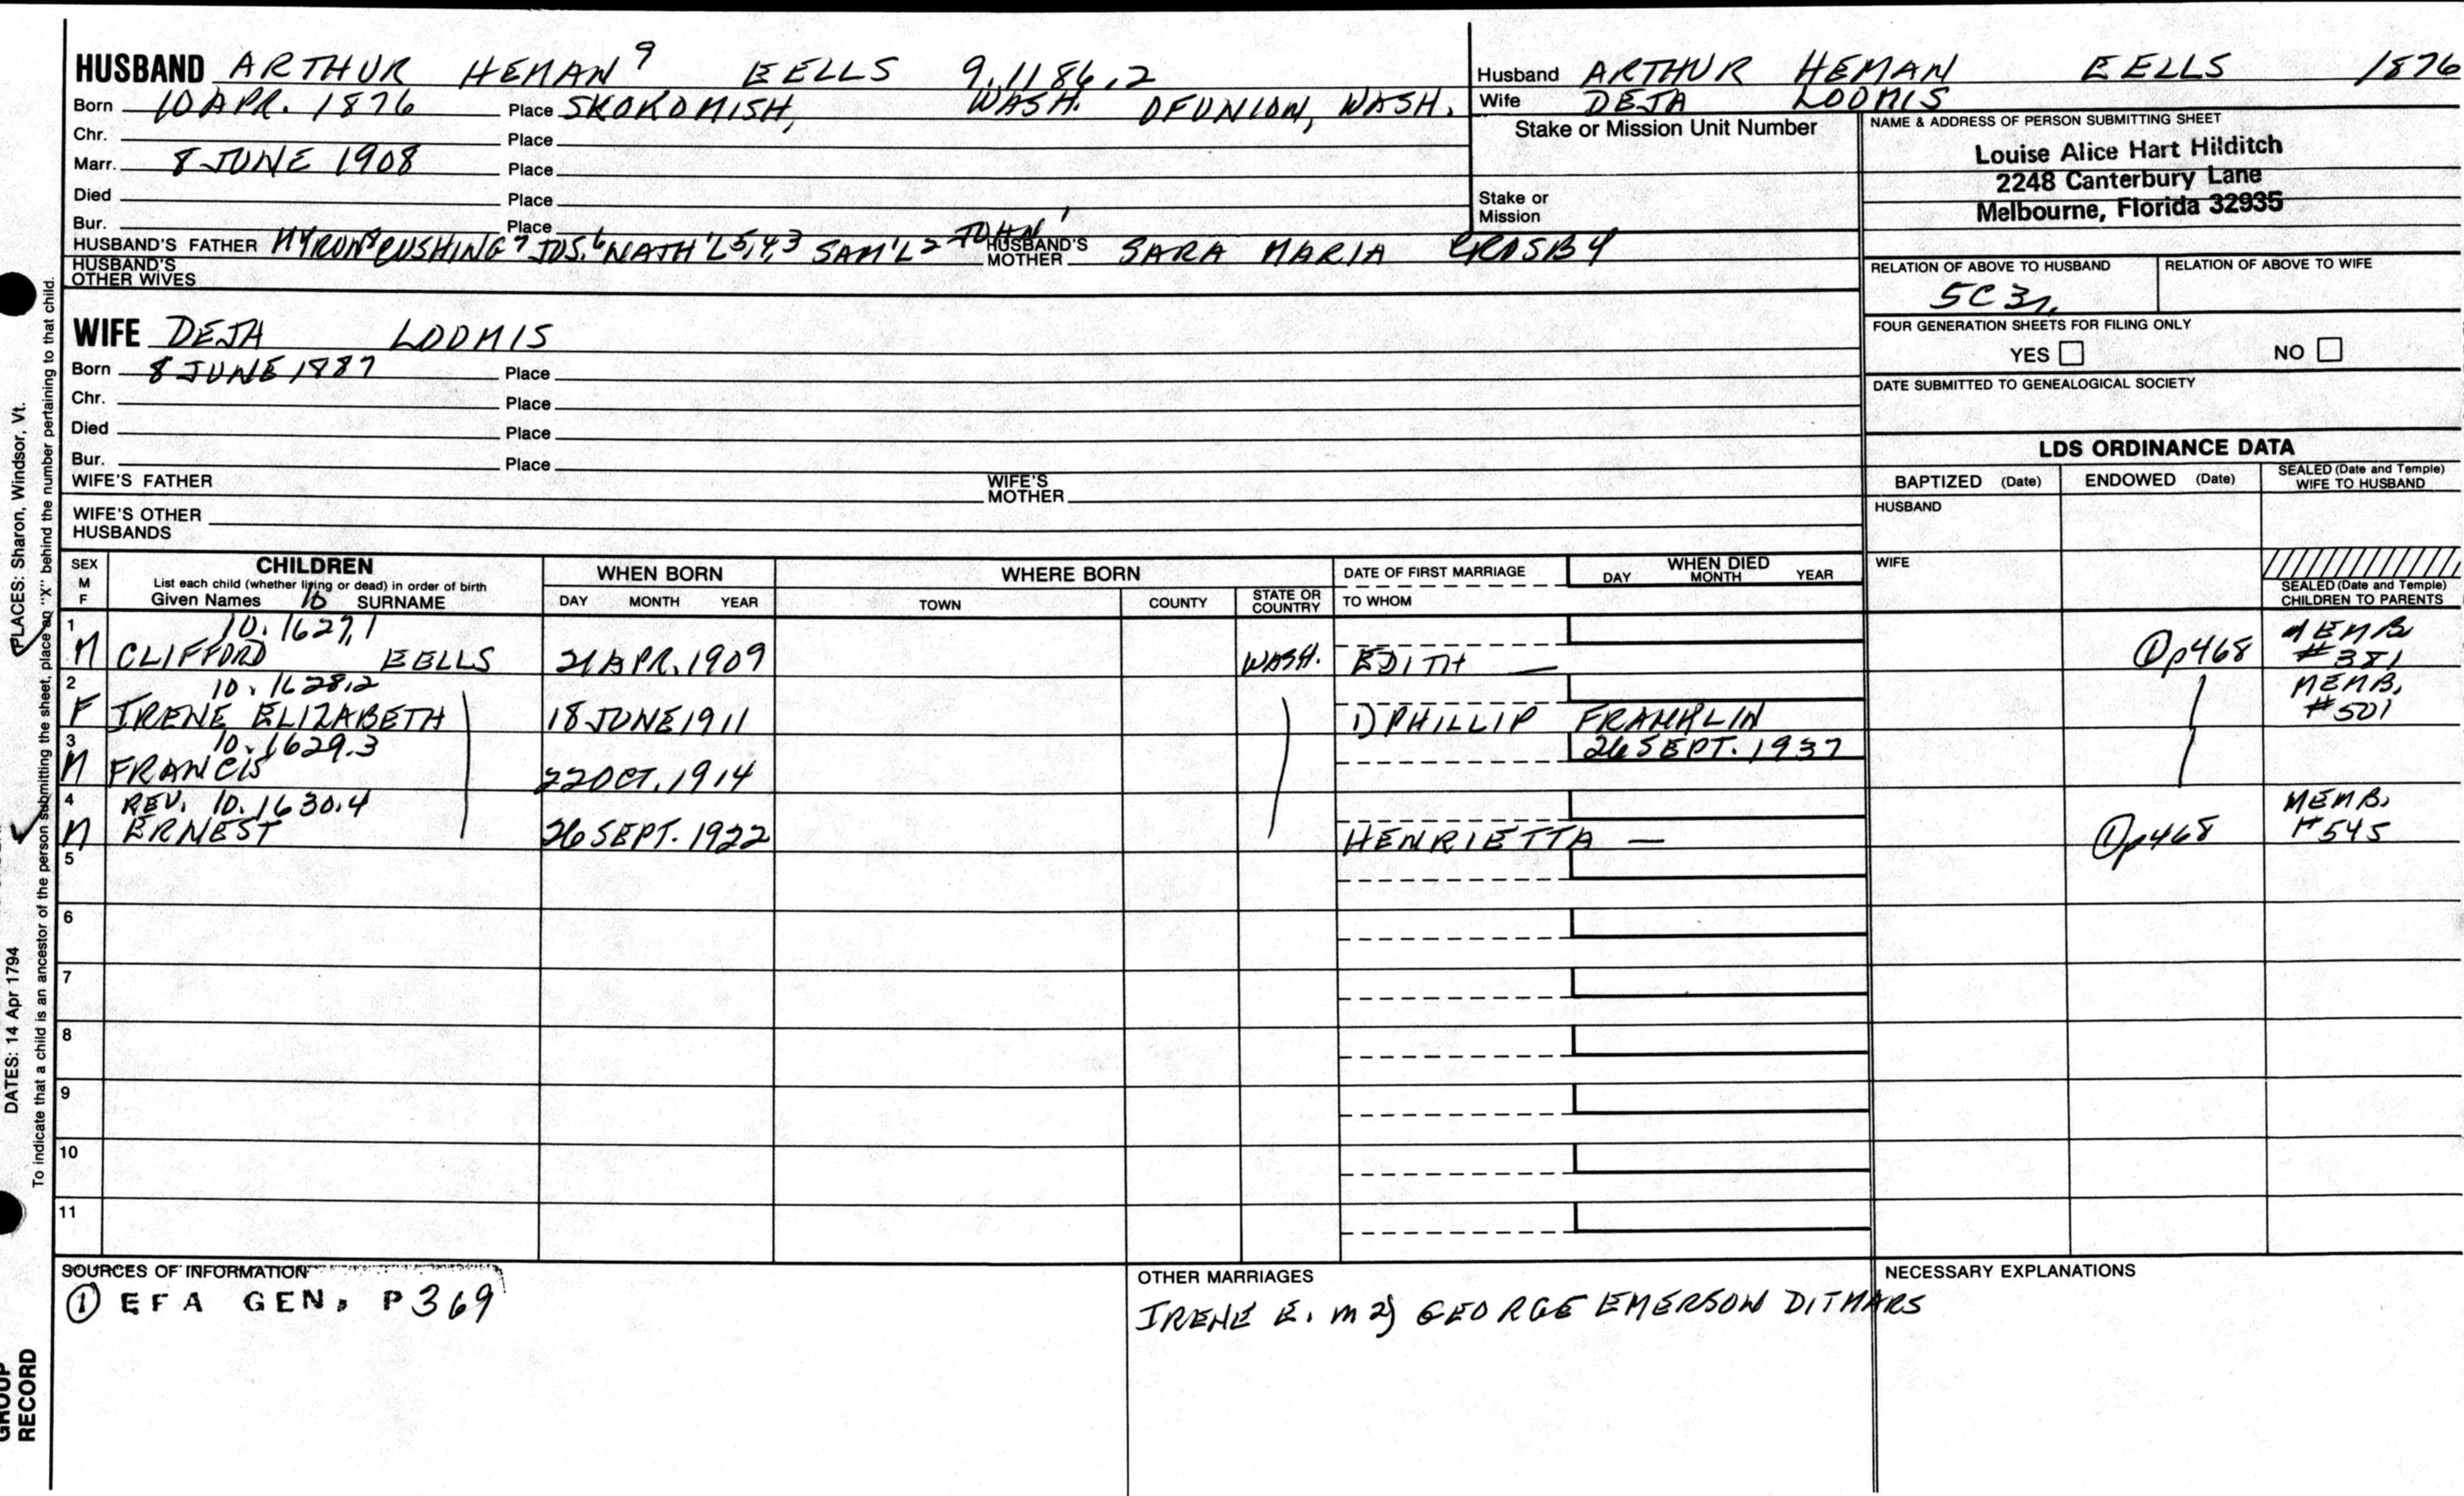 HUSBAND ARTHUR HEMAN⁹ EELLS 9.1186.2
Born 10 APR. 1876 Place SKOKOMISH, WASH. OFUNION, WASH.
Chr. Place
Marr. 8 JUNE 1908 Place
Died Place
Bur. Place
HUSBAND'S FATHER MYRON⁸ CUSHING⁷ JOS.⁶ NATH'L⁵,⁴,³ SAM'L² JOHN¹ HUSBAND'S MOTHER SARA MARIA CROSBY
HUSBAND'S OTHER WIVES
Husband ARTHUR HEMAN EELLS 1876
Wife DEJA LOOMIS
Stake or Mission Unit Number
Stake or Mission
NAME & ADDRESS OF PERSON SUBMITTING SHEET
Louise Alice Hart Hilditch
2248 Canterbury Lane
Melbourne, Florida 32935
RELATION OF ABOVE TO HUSBAND RELATION OF ABOVE TO WIFE
5C3r.
FOUR GENERATION SHEETS FOR FILING ONLY
YES NO
DATE SUBMITTED TO GENEALOGICAL SOCIETY
WIFE DEJA LOOMIS
Born 8 JUNE 1887 Place
Chr. Place
Died Place
Bur. Place
WIFE'S FATHER WIFE'S MOTHER
WIFE'S OTHER HUSBANDS
LDS ORDINANCE DATA
BAPTIZED (Date) ENDOWED (Date) SEALED (Date and Temple) WIFE TO HUSBAND
HUSBAND
WIFE
SEALED (Date and Temple) CHILDREN TO PARENTS
SEX M F
CHILDREN
List each child (whether living or dead) in order of birth
Given Names 10 SURNAME
WHEN BORN
DAY MONTH YEAR
WHERE BORN
TOWN COUNTY STATE OR COUNTRY
DATE OF FIRST MARRIAGE
TO WHOM
WHEN DIED
DAY MONTH YEAR
1 10.1627.1
M CLIFFORD EELLS 21 APR. 1909 WASH. EDITH — ①p468 MEMB #381
2 10.1628.2
F IRENE ELIZABETH 18 JUNE 1911 1) PHILLIP FRANKLIN MEMB. #501
3 10.1629.3 26 SEPT. 1937
M FRANCIS 22 OCT. 1914
4 REV. 10.1630.4
M ERNEST 26 SEPT. 1922 HENRIETTA — ①p468 MEMB. #545
5
6
7
8
9
10
11
SOURCES OF INFORMATION
① EFA GEN. P369
OTHER MARRIAGES
IRENE E. m 2) GEORGE EMERSON DITMARS
NECESSARY EXPLANATIONS
PLACES: Sharon, Windsor, Vt.
DATES: 14 Apr 1794
To indicate that a child is an ancestor of the person submitting the sheet, place an "X" behind the number pertaining to that child.
GROUP
RECORD